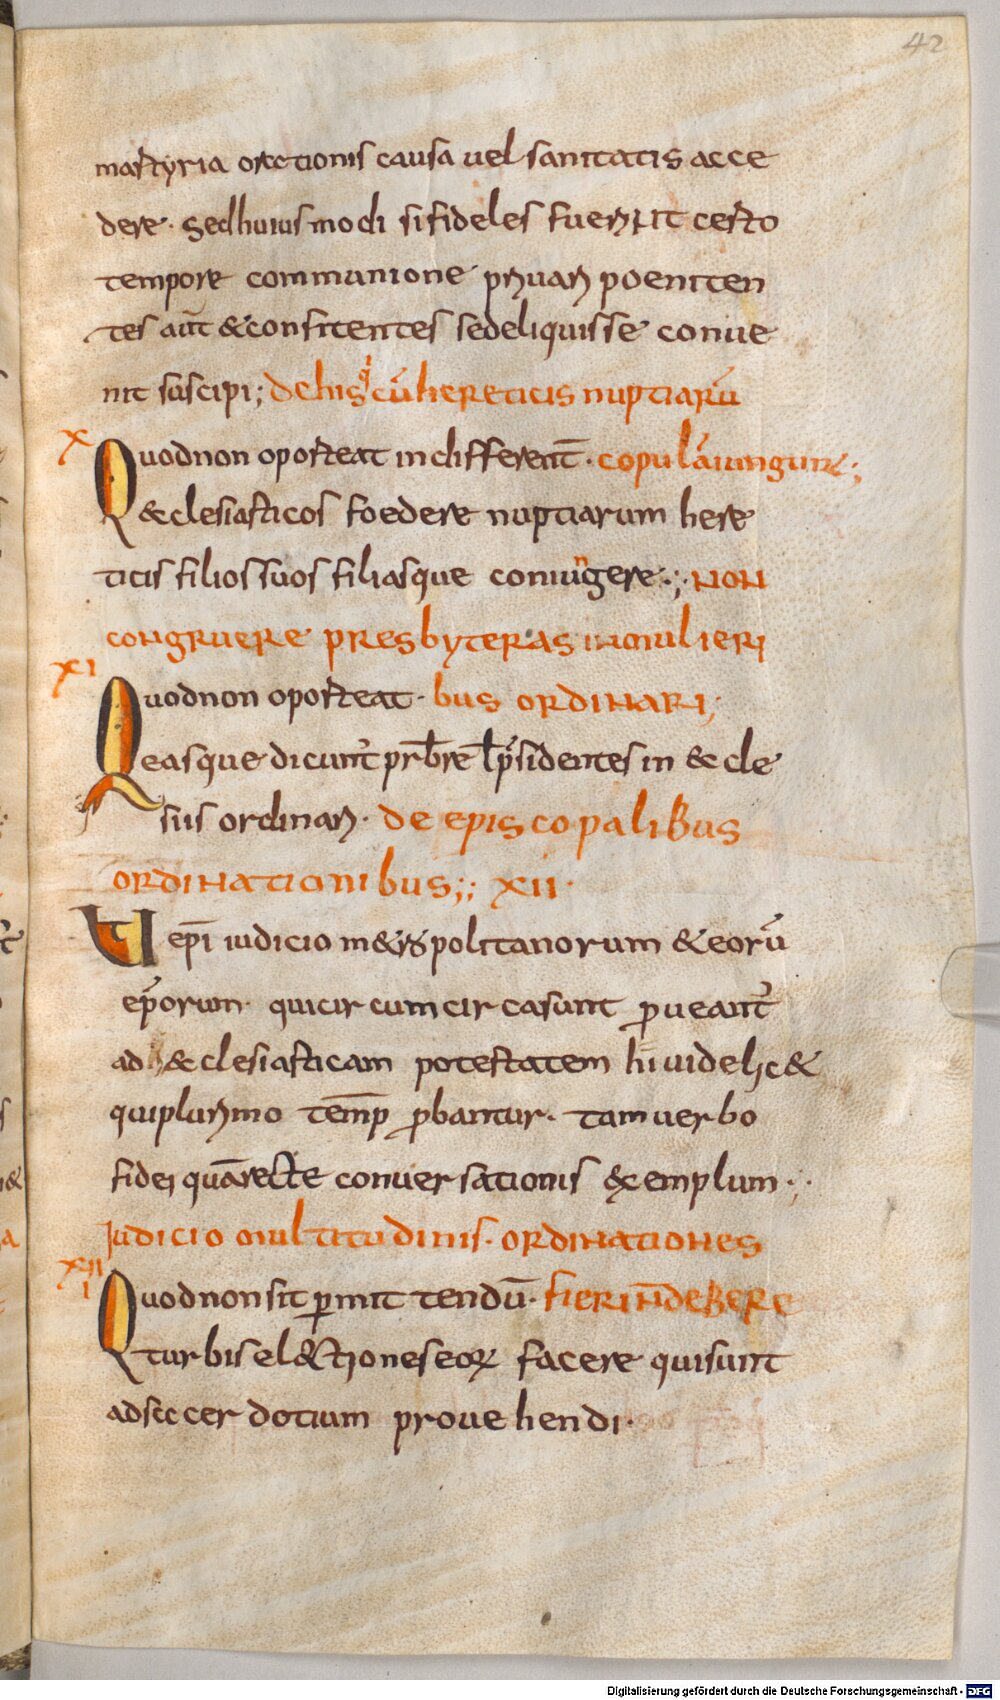 42
martyria orationis causa uel sanitatis acce
dere · sed huius modi si fideles fuerint certo
tempore communione priuari poeniten
tes aut̄ &confitentes sedeliquisse conue
nit suscipi; dehis q cū hereticis nuptiarū
X
Quodnon oporteat indifferent̄ · copulā iungunt;
&clesiasticos foedere nuptiarum here
ticis filios suos filiasque coniungere:; NON
CONGRUERE PRESBYTERAS INMULIERI
XI
Quodnon oporteat · BUS ORDINARI;
easque dicunt̄ prb̄re l p̄sidentes in &cle
siis ordinari · DE EPISCOPALIBUS
ORDINATIONIBUS;; XII ·
Ut ep̄i iudicio m&ropolitanorum &eorū
ep̄orum · quicir cumcir casunt ꝓueant̄
ad &clesiasticam potestatem hi uidelic&
quiplurimo temp̄ ꝓbantur · tam uerbo
fidei quārecte conuersationis exemplum · ;
IUDICIO MULTITUDINIS · ORDINATIONES
XIII
Quodnonsit ꝑmittendū · FIERI NDEBERE
turbis el&tiones eoꝝ facere quisunt
adsacerdotium prouehendi ·
Digitalisierung gefördert durch die Deutsche Forschungsgemeinschaft - DFG